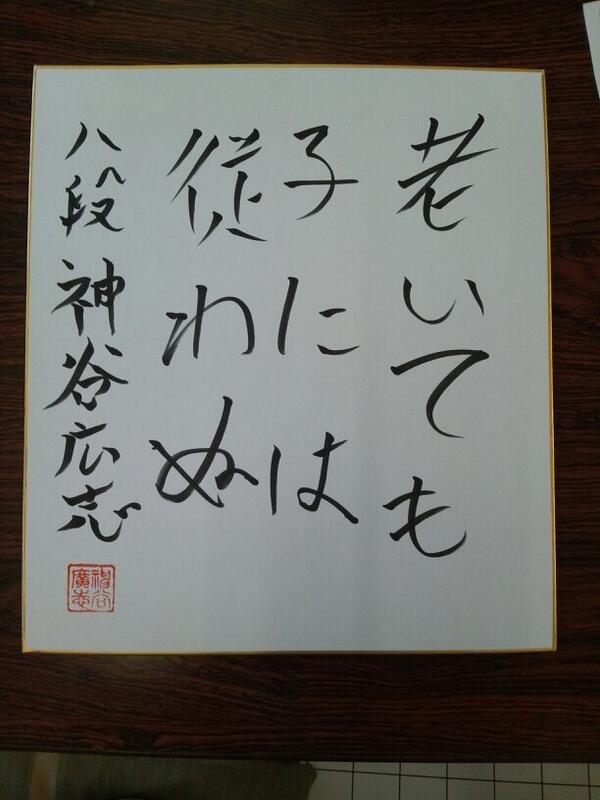 老いても
子には
従わぬ
八段 神谷広志
神谷
廣志